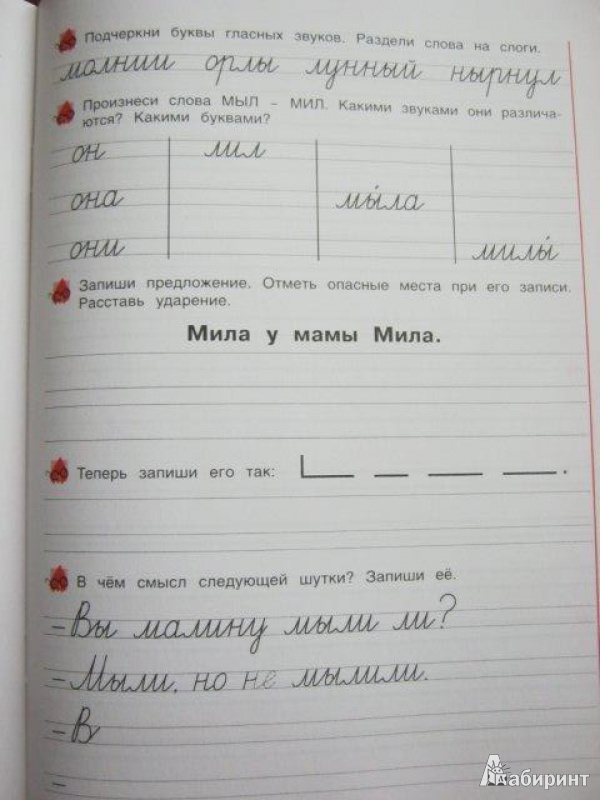 Подчеркни буквы гласных звуков. Раздели слова на слоги.
молнии орлы лунный нырнул
Произнеси слова МЫЛ – МИЛ. Какими звуками они различа-
ются? Какими буквами?
он мил
она мы́ла
они милы́
Запиши предложение. Отметь опасные места при его записи.
Расставь ударение.
Мила у мамы Мила.
Теперь запиши его так:
В чём смысл следующей шутки? Запиши её.
–Вы малину мыли ли?
–Мыли, но не мылили.
–В
–
Лабиринт